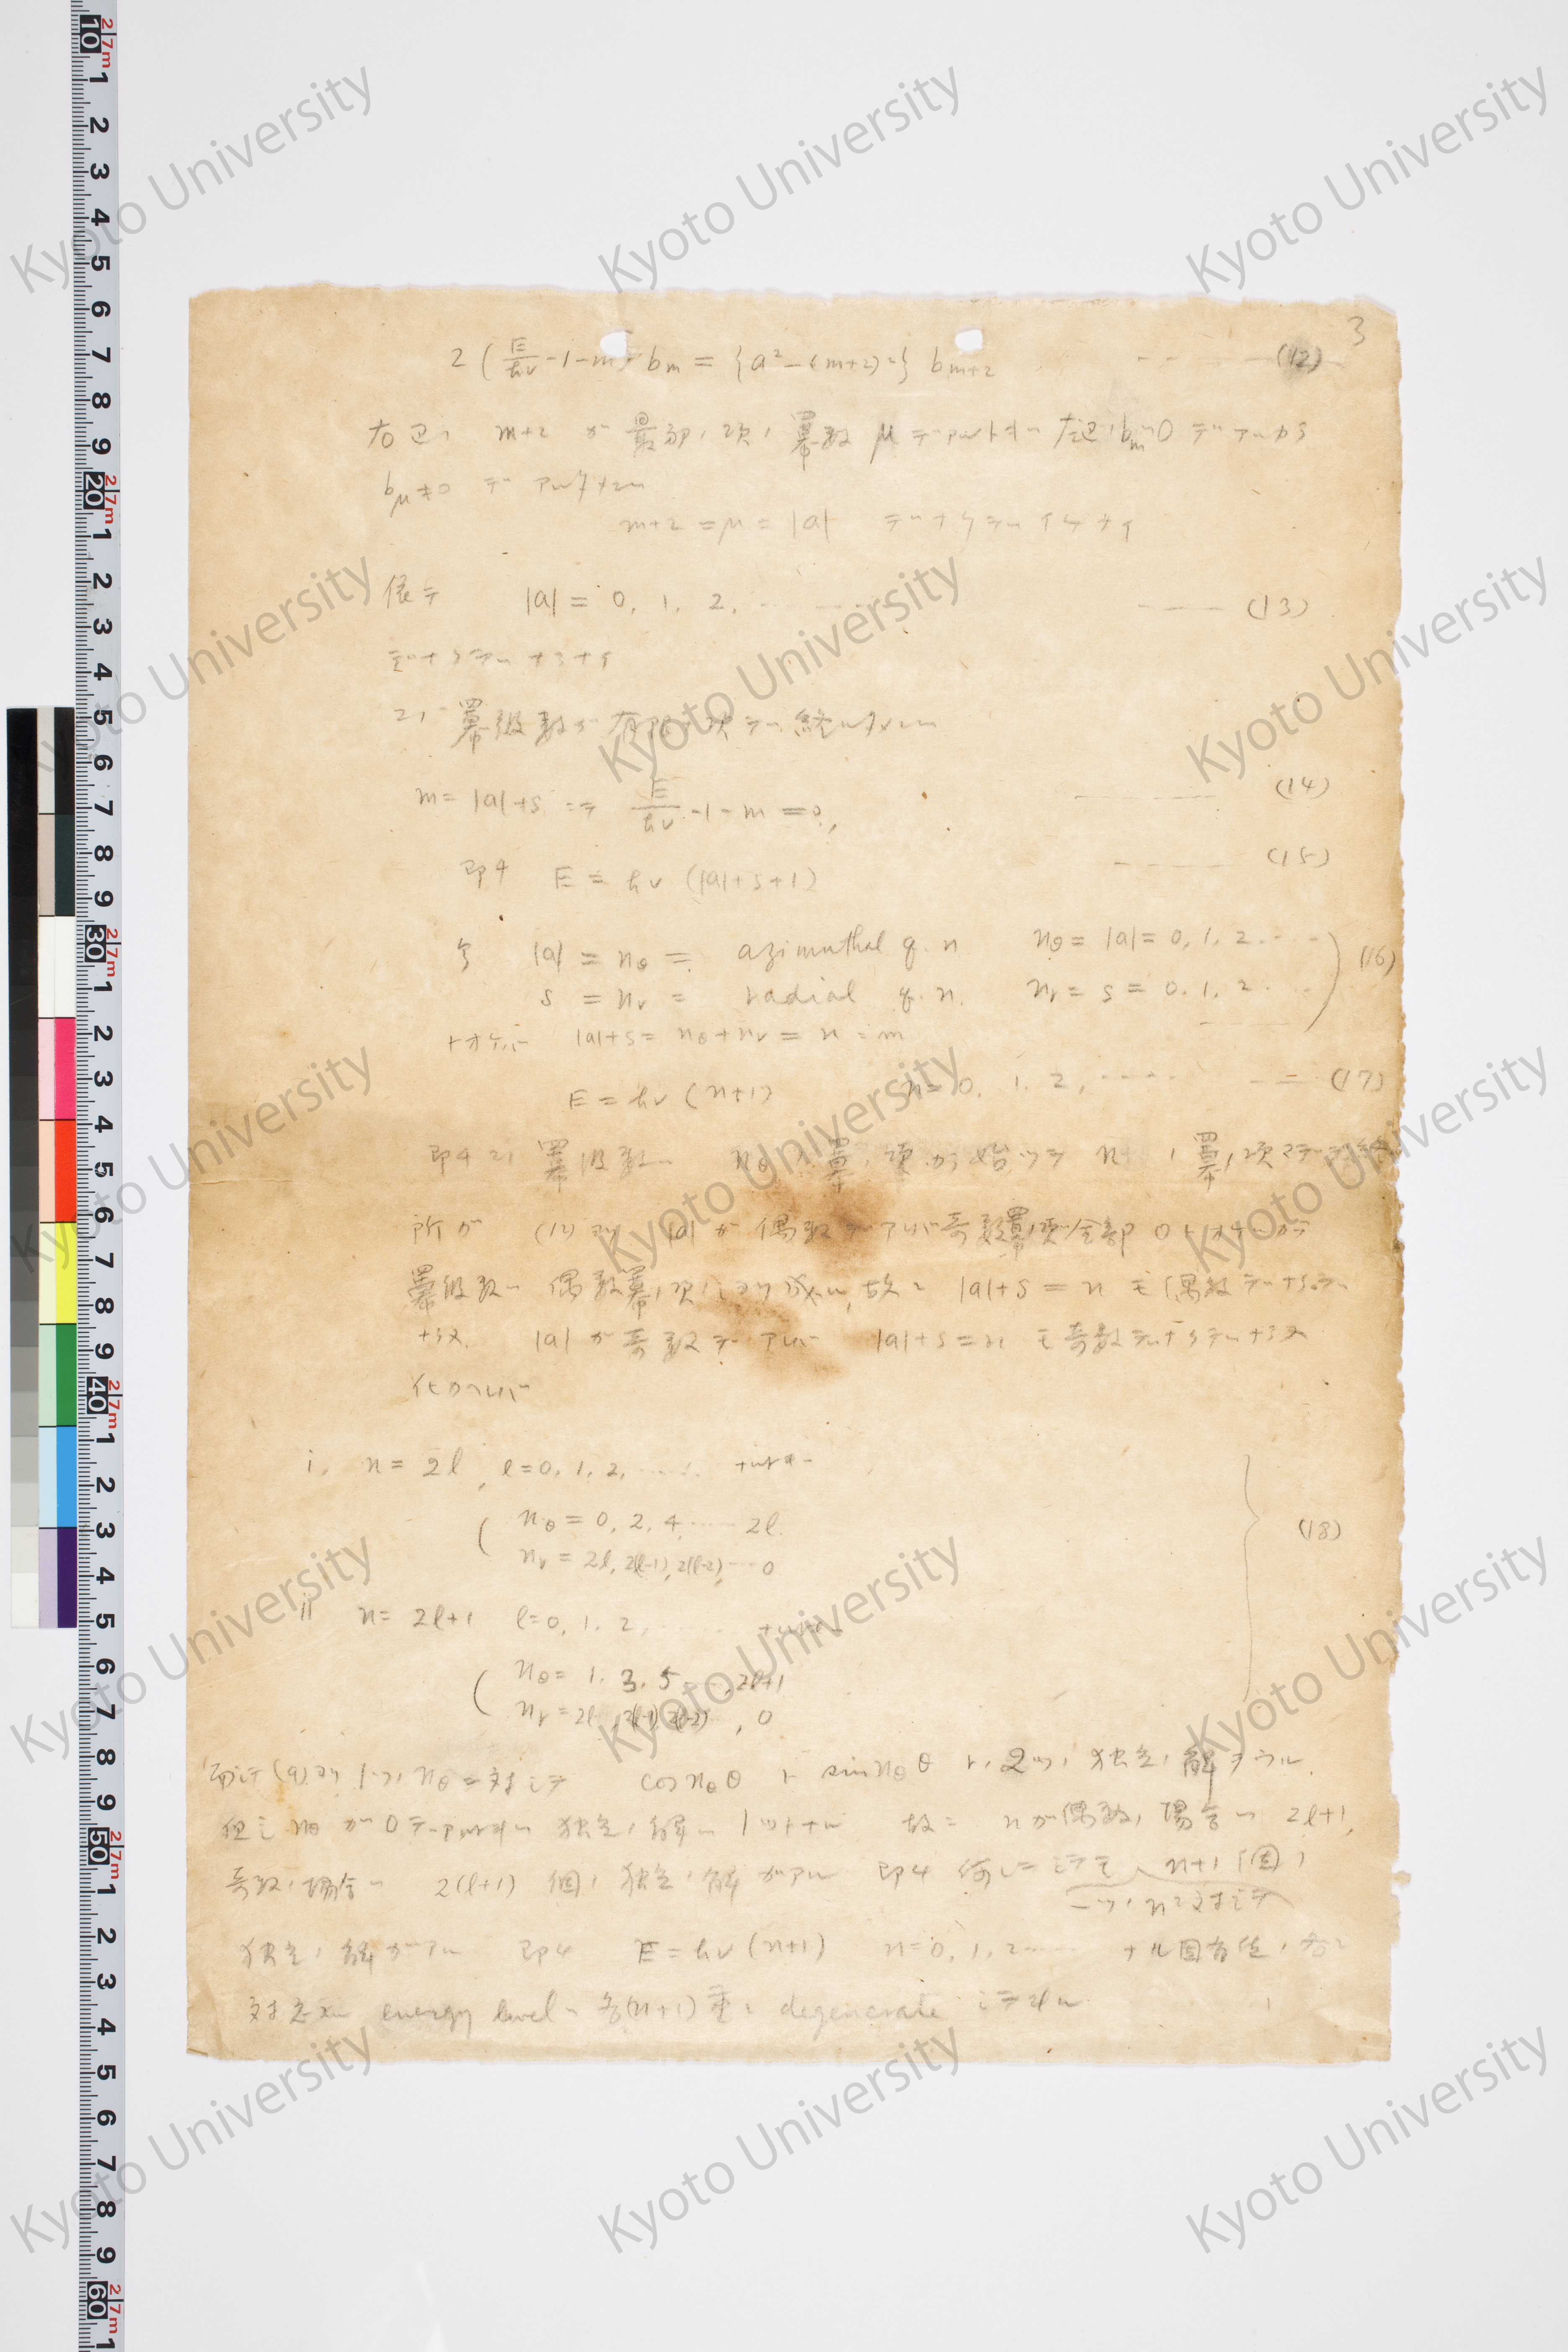 3
2 (E/hν -1-m) b_m = {a² - (m+2)²} b_{m+2} (12)
右辺ハ m+2 ガ 最初ノ項ノ冪数 μ デアルトキハ 左辺ノ b_m=0 デアルカラ
b_μ≠0 デアルタメニハ
m+2 = μ = |a| デナケテハイケナイ
依テ |a| = 0, 1, 2, ...... --- (13)
デナケテハナラナイ
コノ冪級数ガ有限ノ項デ終ルタメニハ
m = |a|+s ニテ E/hν -1-m = 0, (14)
即チ E = hν (|a|+s+1) ---- (15)
今 |a| = n_θ = azimuthal q. n n_θ = |a| = 0, 1, 2 ....
s = n_r = radial q. n. n_r = s = 0, 1, 2 .... (16)
トオケバ |a|+s = n_θ+n_r = n = m
E = hν (n+1) n = 0, 1, 2, ..... -- (17)
即チコノ冪級数ハ n_θ ノ冪ノ項カラ始ツテ n ノ冪ノ項マデデ終
所ガ (12) ヨリ |a| ガ偶数デアレバ奇数冪ノ項ハ全部 0 トオケルカラ
冪級数ハ 偶数冪ノ項ノミヨリ成ル, 故ニ |a|+s = n モ偶数デナラネバ
ナラヌ |a| ガ奇数デアレバ |a|+s = n モ奇数デナケテハナラヌ
i. n = 2l, l = 0, 1, 2, ..... ナルトキハ
( n_θ = 0, 2, 4, ..... 2l.
n_r = 2l, 2(l-1), 2(l-2), ... 0 (18)
ii n = 2l+1 l = 0, 1, 2, ..... ナルトキハ
( n_θ = 1, 3, 5 ..., 2l+1
n_r = 2l, 2(l-1), 2(l-2) , 0
而シテ (9) ヨリ 1ツノ n_θ ニ対シテ cos n_θ θ ト sin n_θ θ ト, 2ツノ独立ノ解ヲウル.
但シ n_θ ガ 0 デアルトキハ 独立ノ解ハ 1ツトナル 故ニ n ガ偶数ノ場合ハ 2l+1,
奇数ノ場合ハ 2(l+1) 個ノ独立ノ解ガアル 即チ何レニシテモ n+1 個ノ
一ツノ n ニ対シテ
独立ノ解ガアル 即チ E = hν (n+1) n = 0, 1, 2 ..... ナル固有値ノ各々
対応スル energy level ハ各(n+1) 重ニ degenerate シテヰル